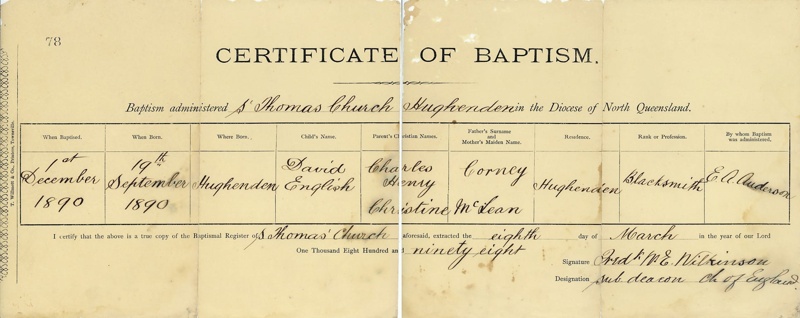 78
CERTIFICATE OF BAPTISM.
Baptism administered St Thomas Church Hughenden in the Diocese of North Queensland.
When Baptised. When Born. Where Born. Child's Name. Parent's Christian Names. Father's Surname and Mother's Maiden Name. Residence. Rank or Profession. By whom Baptism was administered.
1st December 1890 19th September 1890 Hughenden David English Charles Henry Corney Hughenden Blacksmith E A Anderson
Christine McLean
I certify that the above is a true copy of the Baptismal Register of St Thomas' Church aforesaid, extracted the eighth day of March in the year of our Lord
One Thousand Eight Hundred and ninety eight
Signature Fredk W E Wilkinson
Designation sub deacon Ch of England.
T. Willmett & Co., Printers, Townsville.